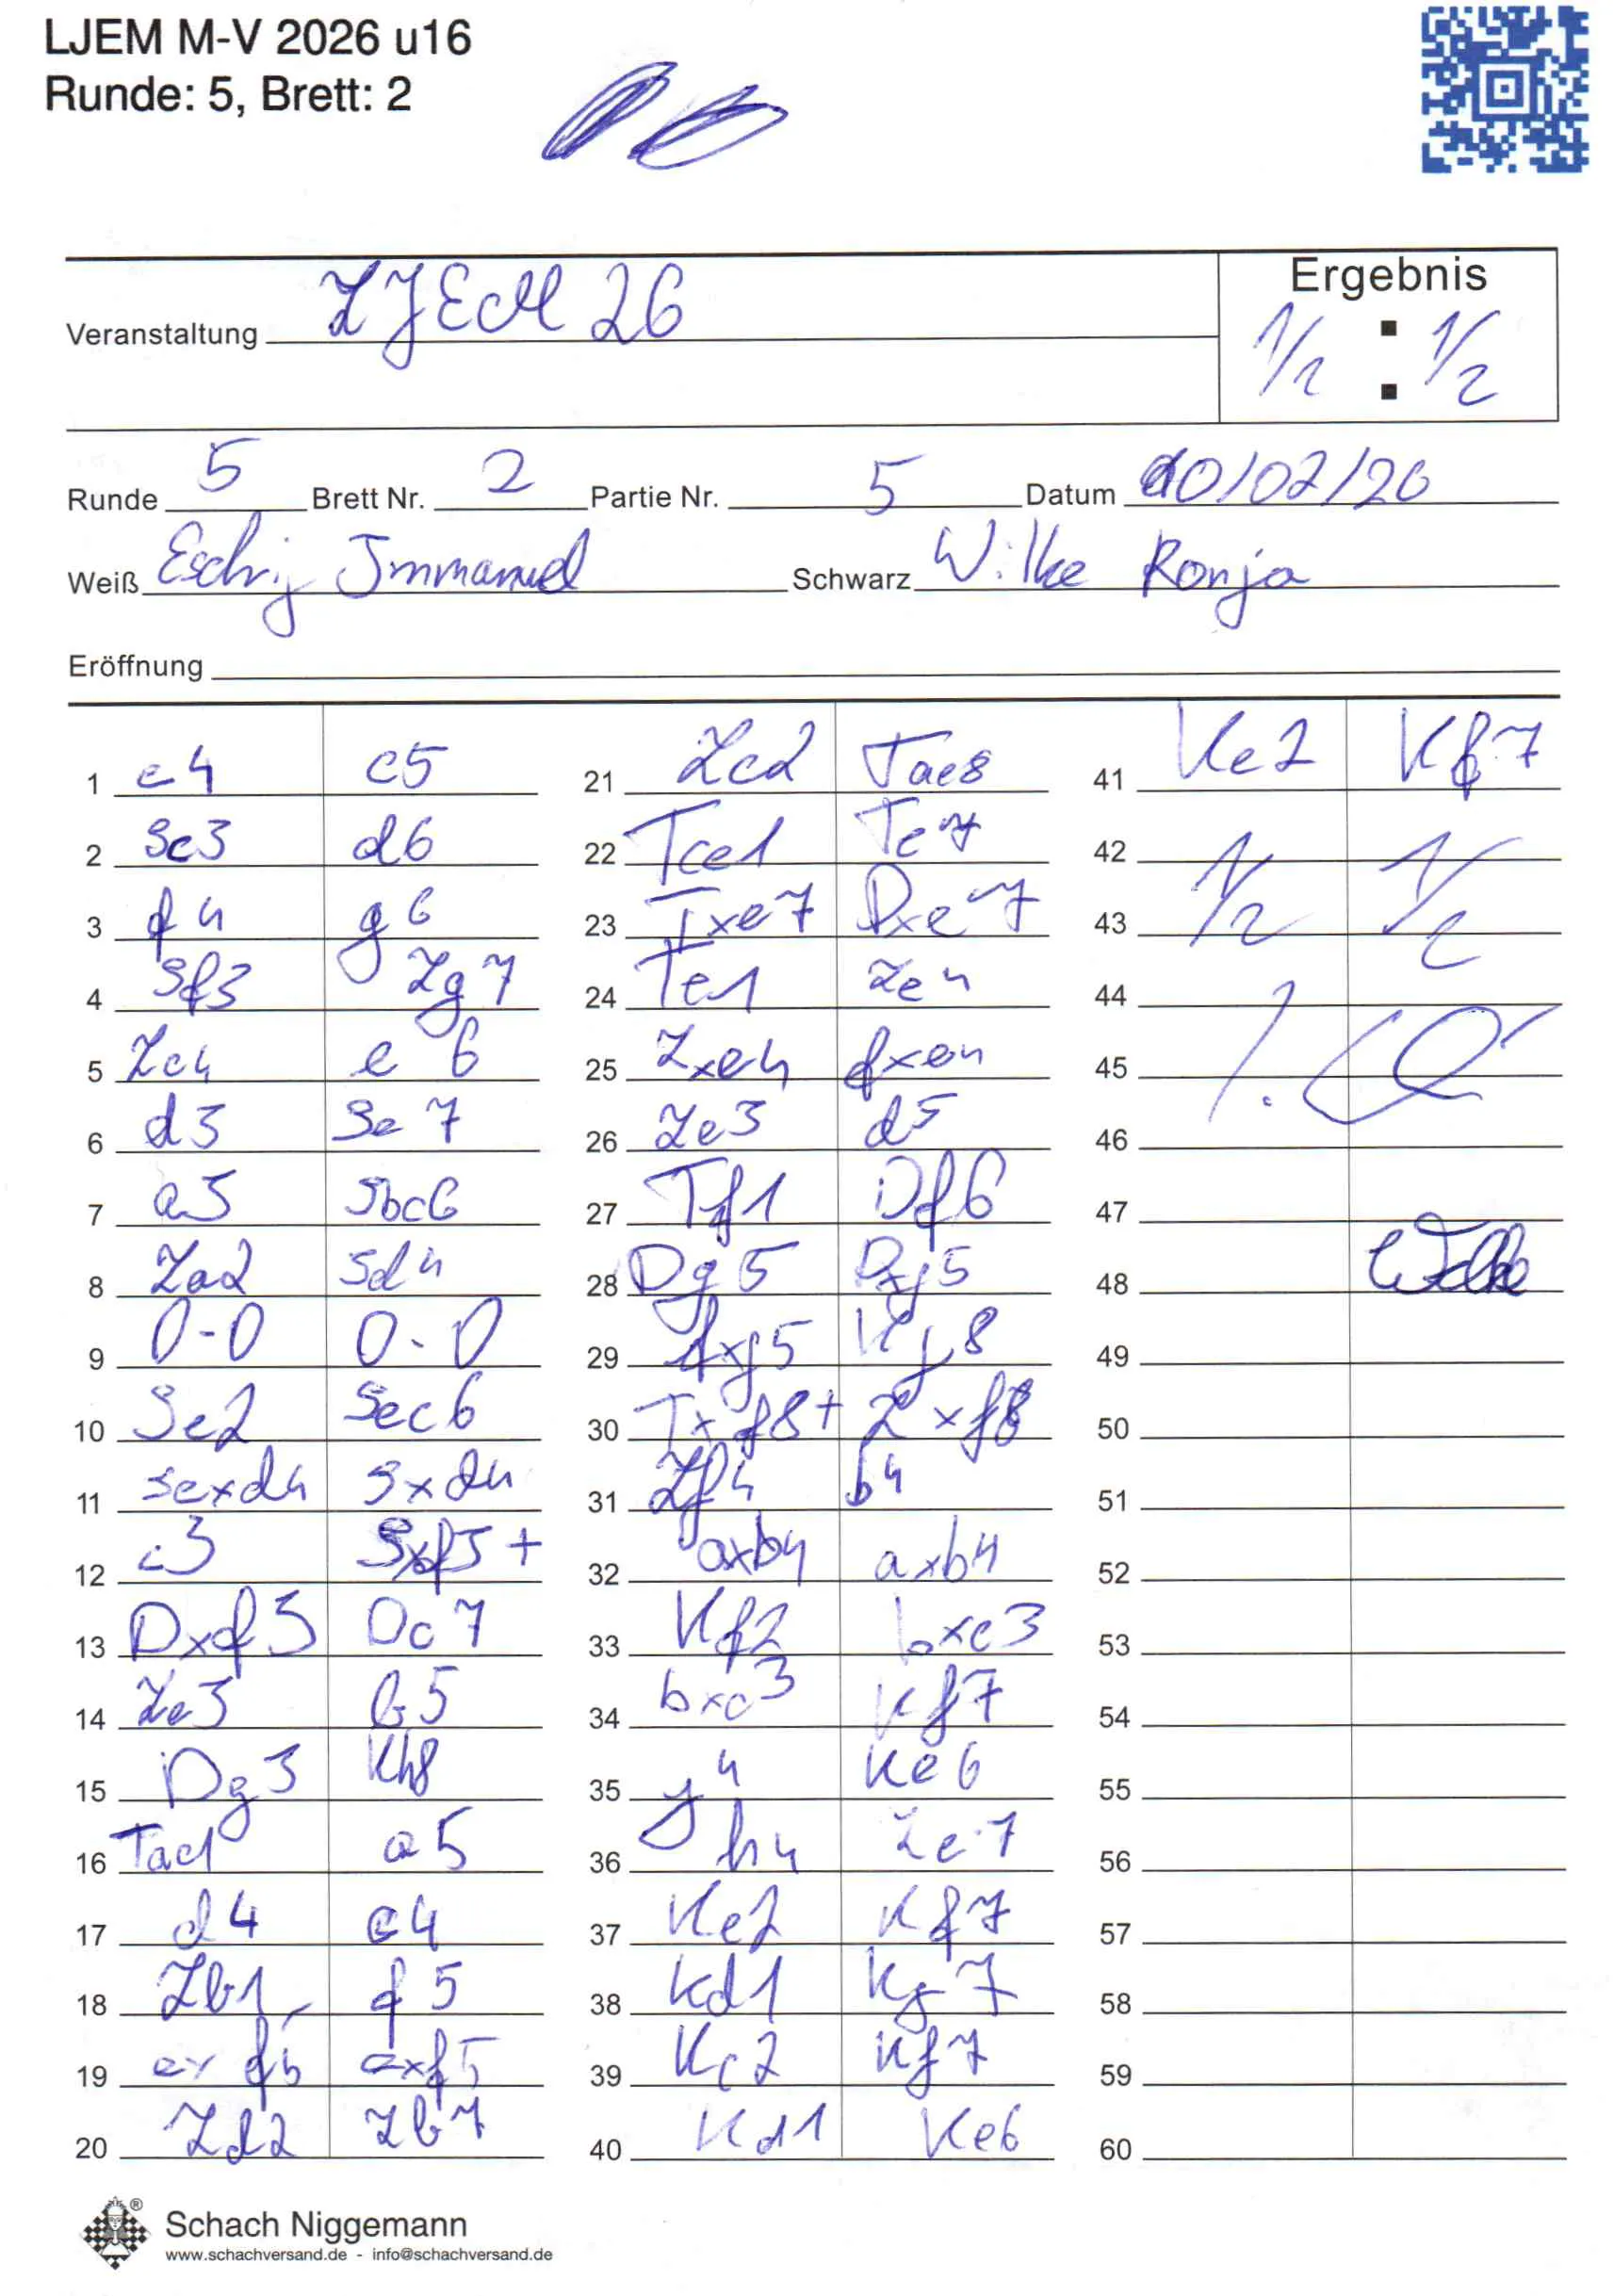 LJEM M-V 2026 u16
Runde: 5, Brett: 2
Ergebnis
Veranstaltung LJEM 26
1/2 : 1/2
Runde 5 Brett Nr. 2 Partie Nr. 5 Datum 10/02/26
Weiß Immanuel Schwarz Wilke Ronja
Eröffnung
1 e4 c5
2 Sc3 d6
3 f4 g6
4 Sf3 Lg7
5 Lc4 e6
6 d3 Se7
7 a3 Sbc6
8 La2 Sd4
9 0-0 0-0
10 Se2 Sec6
11 Sexd4 Sxd4
12 c3 Sxf3+
13 Dxf3 Dc7
14 Le3 b5
15 Dg3 Kh8
16 Tac1 a5
17 d4 c4
18 Lb1 f5
19 exf5 exf5
20 Ld2 Lb7
21 Lc2 Tae8
22 Tce1 Te7
23 Txe7 Dxe7
24 Te1 Le4
25 Lxe4 fxe4
26 Le3 d5
27 Tf1 Df6
28 Dg5 Dxg5
29 fxg5 Kg8
30 Txf8+ Lxf8
31 Lf4 b4
32 axb4 axb4
33 Kf2 bxc3
34 bxc3 Kf7
35 g4 Ke6
36 h4 Le7
37 Ke2 Kf7
38 Kd1 Kg7
39 Kc2 Kf7
40 Kd1 Ke6
41 Ke2 Kf7
42 1/2 1/2
43
44
45
46
47
48 Wilke
49
50
51
52
53
54
55
56
57
58
59
60
Schach Niggemann
www.schachversand.de - info@schachversand.de